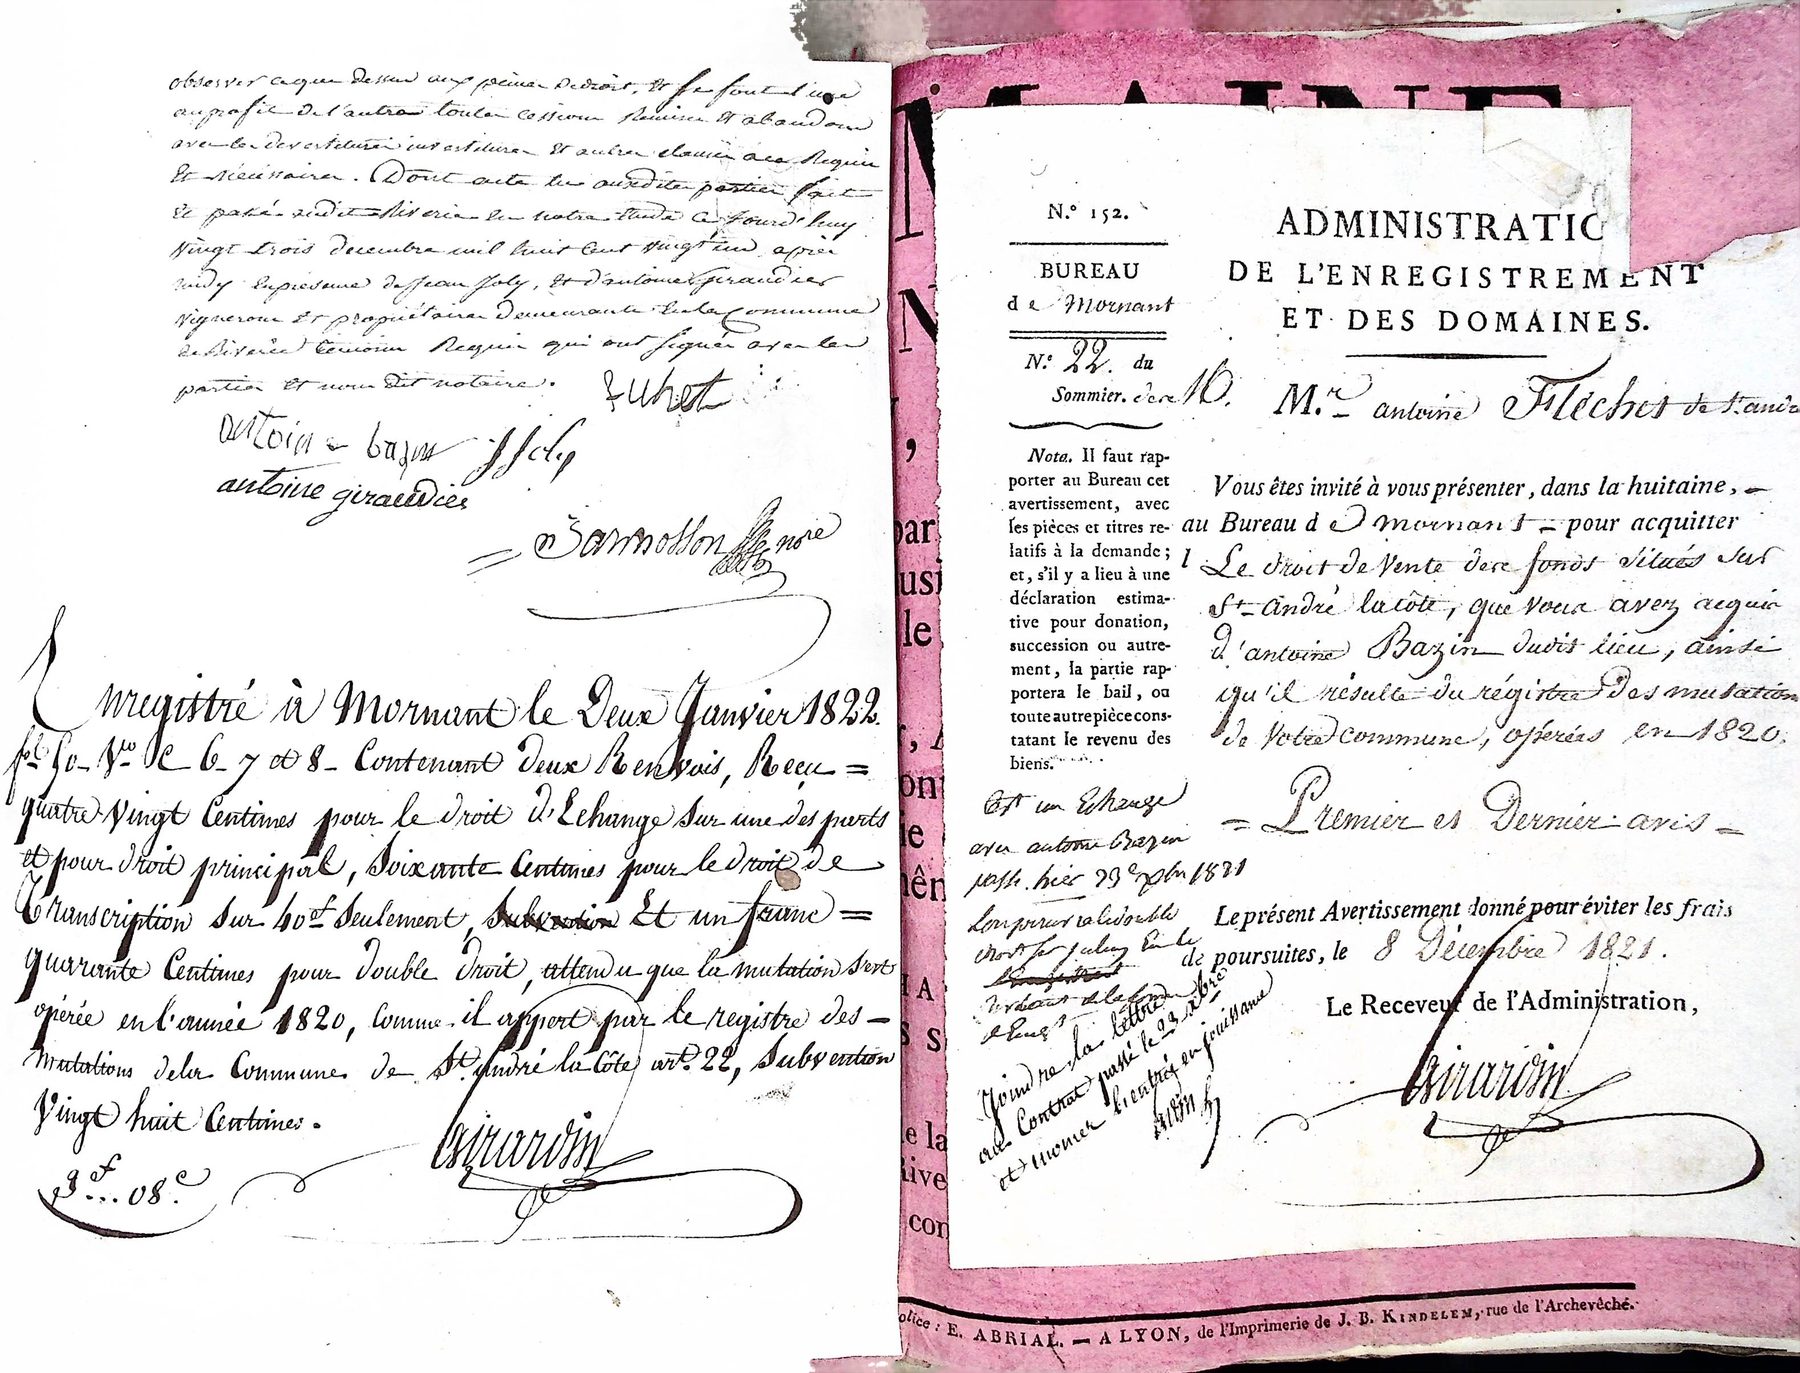 observer ce que dessus aux peines de droit, et se font l'une
au profit de l'autre toutes cessions remises et abandons
avec les devestitures investitures et autres clauses à ce Requises
et nécessaires. Dont acte les susdites parties fait
et passé audit Riverie en notre étude ce Jourd'huy
vingt trois decembre mil huit cent vingt un après
midy en présence de Jean Joly, et d'antoine Giraudier
vignerons et propriétaires demeurants en la Commune
de Riverie témoins Requis qui ont signés avec les
parties et nous dit notaire.
antoine bazin JJoly
antoine giraudier
nore
Enregistré à Mornant le Deux Janvier 1822.
fol. 50 Vo C 6 7 et 8 Contenant deux Renvois, Reçu =
quatre Vingt Centimes pour le droit d'Echange sur une des parts
et pour droit principal, Soixante Centimes pour le droit de
Transcription sur 40f Seulement, Subvention Et un franc =
quarante Centimes pour double droit, attendu que la mutation s'est
opérée en l'année 1820, comme il appert par le registre des
mutations de la Commune de St. André la Côte art. 22, Subvention
Vingt huit Centimes.
Girardin
3f...08c.
MAINE
N.° 152.
BUREAU
de Mornant
N.° 22. du
Sommier. des
Nota. Il faut rap-
porter au Bureau cet
avertissement, avec
les pièces et titres re-
latifs à la demande;
et, s'il y a lieu à une
déclaration estima-
tive pour donation,
succession ou autre-
ment, la partie rap-
portera le bail, ou
toute autre pièce cons-
tatant le revenu des
biens.
Est un Echange
avec antoine Bazin
passé hier 23e Xbre 1821
Joindre la lettre
au Contrat passé le 23 Xbre
et
ADMINISTRATIO
DE L'ENREGISTREMENT
ET DES DOMAINES.
M.r antoine Fléchet de St. andré
Vous êtes invité à vous présenter, dans la huitaine,
au Bureau d e mornant pour acquitter
l Le droit de Vente des fonds situés sur
St. André la côte, que vous avez acquis
d'antoine Bazin dudit lieu, ainsi
qu'il résulte du régistre Des mutations
de Votre commune, opérées en 1820.
= Premier et Dernier avis =
Le présent Avertissement donné pour éviter les frais
de poursuites, le 8 Décembre 1821.
Le Receveur de l'Administration,
Girardin
par
usi
le
on
ie
mên
e la
Rive
con
olice : E. ABRIAL. — A LYON, de l'Imprimerie de J. B. KINDELEM, rue de l'Archevêché.